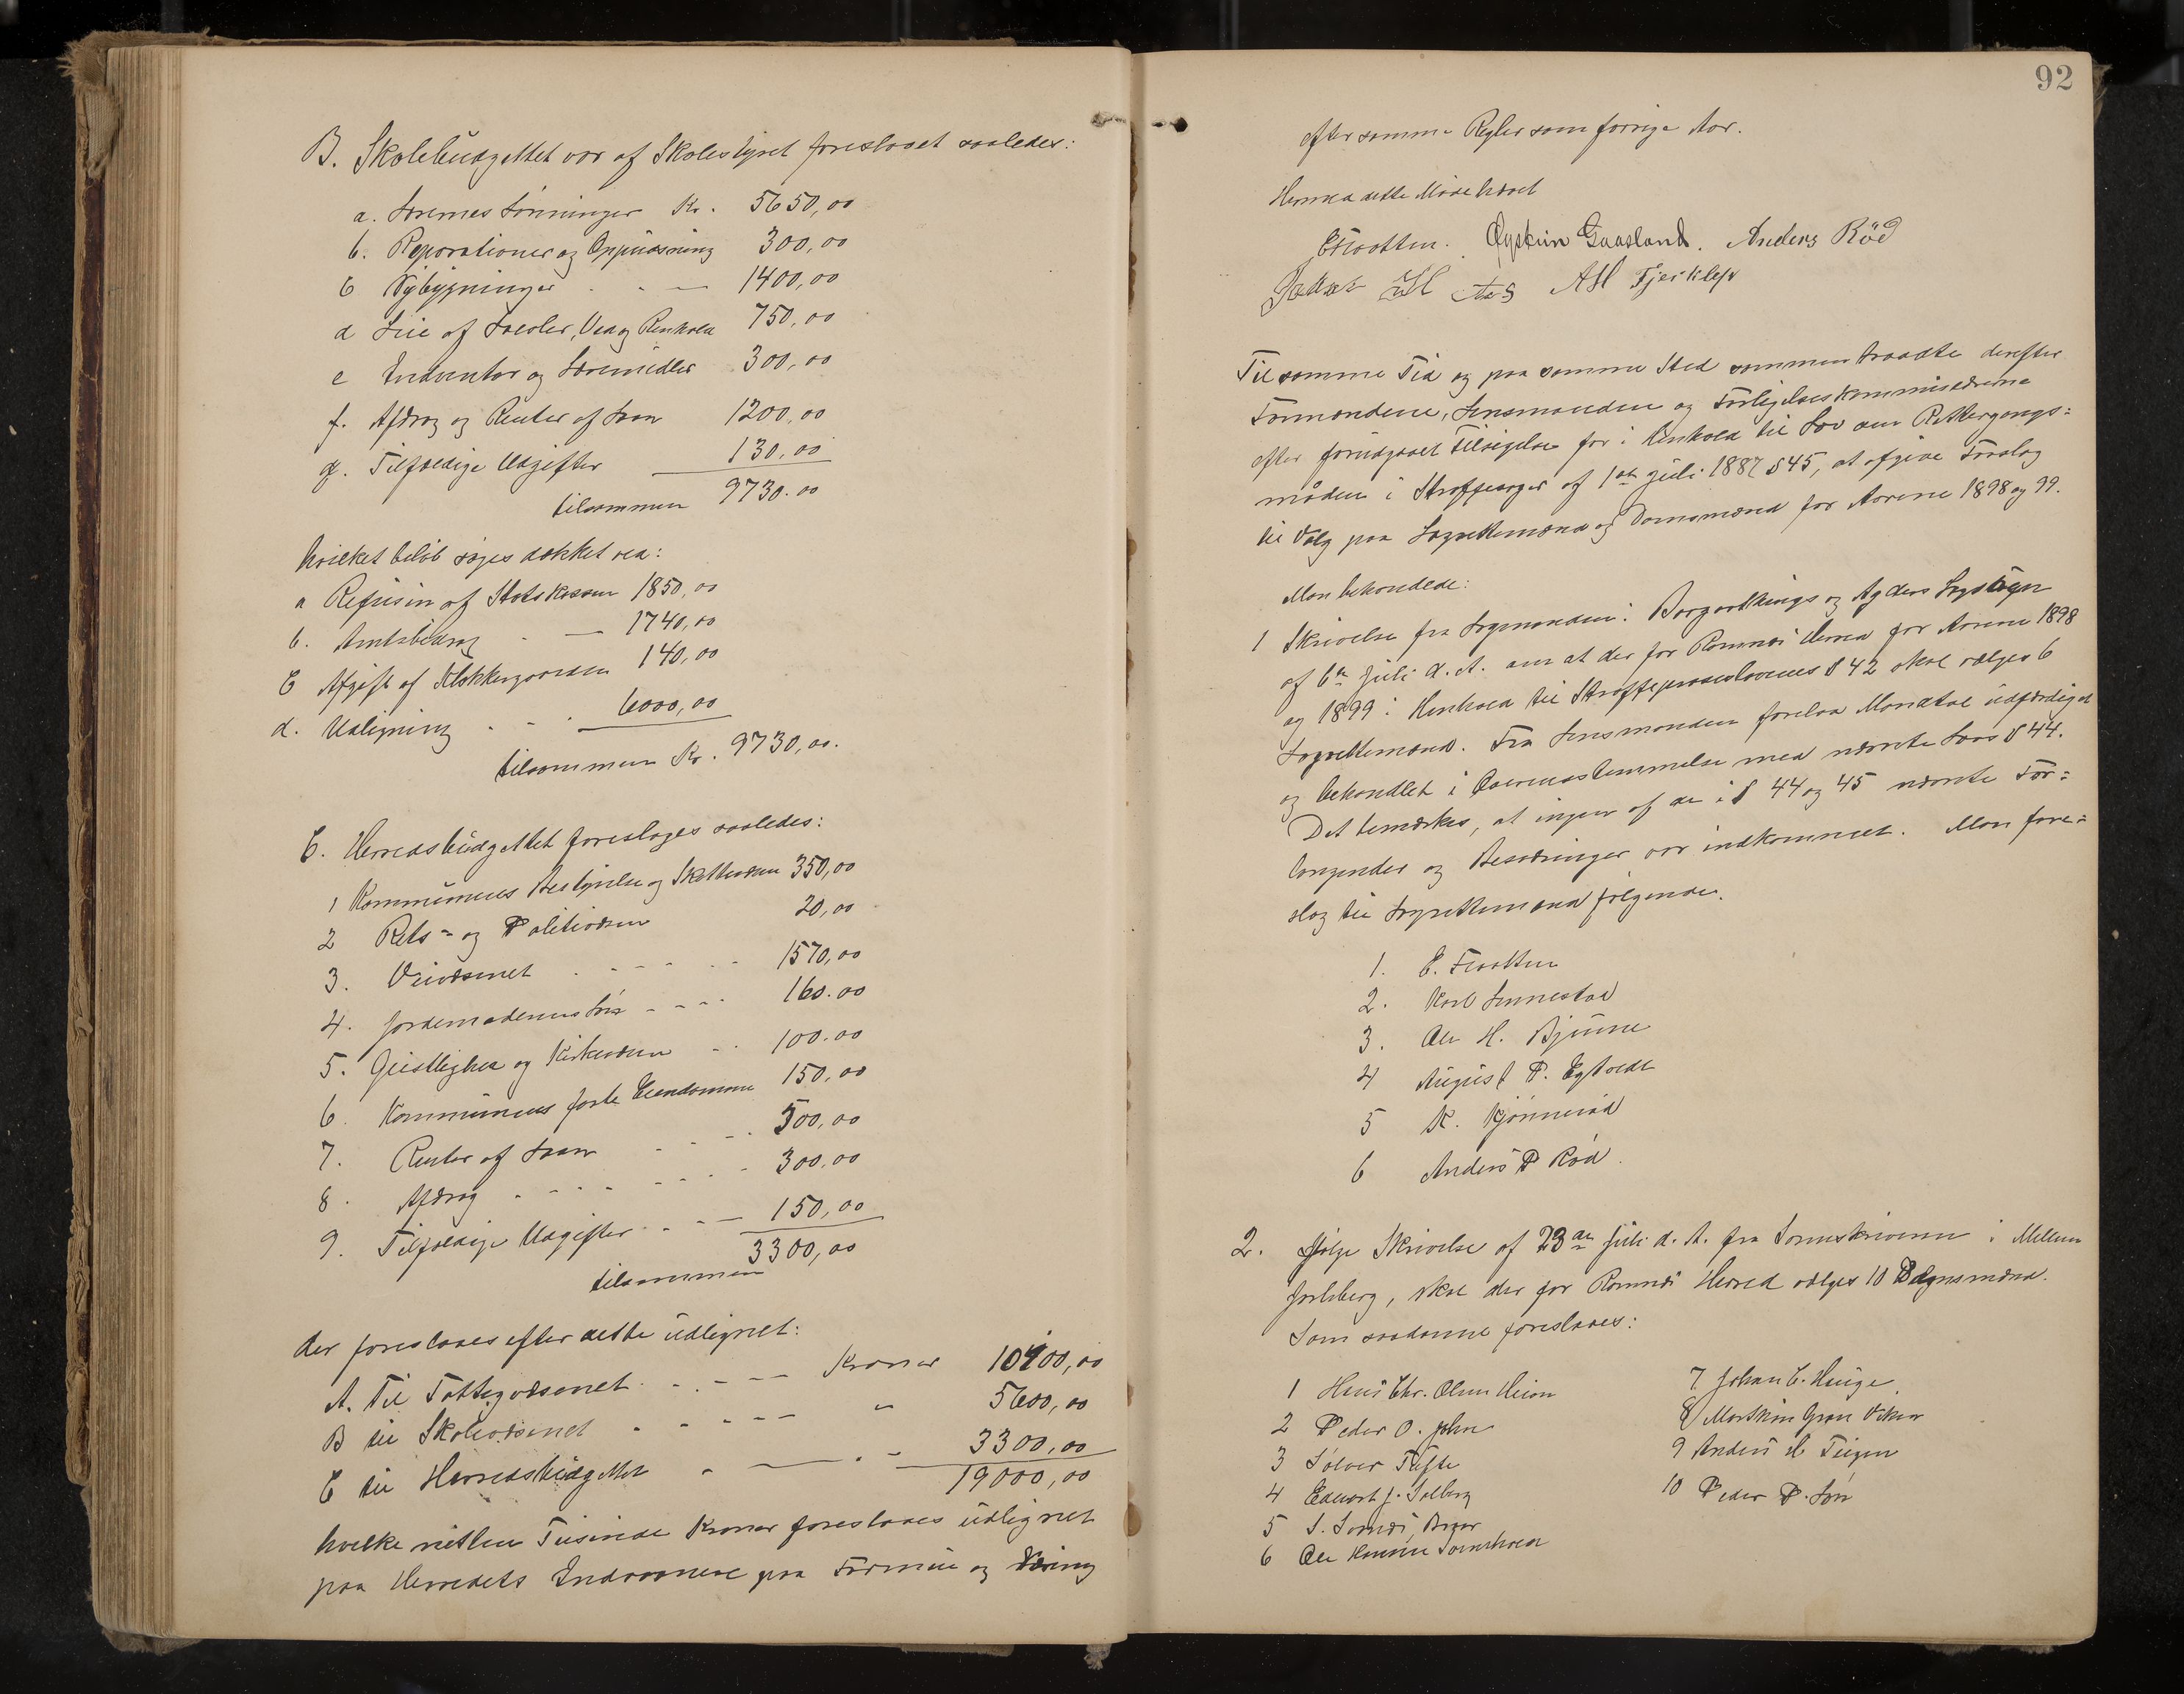 B. Skolebudgettet var af Skolestyret foreslaaet saaledes:
a. Lærernes Lønninger Kr. 5650,00
b. Reparationer og Oppudsning 300,00
C Nybygninger 1400,00
d Leie af Localer, Ved og Renhold 750,00
e Inventar og Læremidler 300,00
f. Afdrag og Renter af Laan 1200,00
g. Tilfældige Udgifter 130,00
tilsammen 9730.00
hvilket beløb søges dækket ved:
a Refusion af Statskassen 1850,00
b. Amtsbidrag 1740,00
C Afgift af Klokkergaarden 140,00
d. Udligning 6000,00
tilsammen Kr. 9730,00.
C. Herredsbudgettet foreslages saaledes:
1 Kommunens Bestyrelse og Skattevæsen 350,00
2 Rets- og Politivæsen 20,00
3. Veivæsenet 1570,00
4. Jordemødrenes Løn 160.00
5. Geistlighed og Kirkevæsen 100.00
6. Kommunens faste Eiendomme 150,00
7. Renter af Laan 500,00
8. Afdrag 300,00
9. Tilfældige Udgifter 150,00
tilsammen 3300,00
der foreslaaes efter dette udlignet:
A. Til Fattigvæsenet Kroner 10100,00
B til Skolevæsenet " 5600,00
C til Herredsbudgettet " 3300,00
19000,00
hvilke nitten Tusinde Kroner foreslaaes udlignet
paa Herredets Indvaanere paa Formue og Næring
92
efter samme Regler som forrige Aar.
Hermed dette Møde hævet
E Flaatten. Øystein Gaasland. Anders Röd
AH Fjerklep
Til samme Tid og paa samme Sted sammentraadte derefter
Formændene, Lensmanden og Forligelseskommissærerne
efter forudgaaet Tilsigelse for i Henhold til Lov om Rettergangs=
måden i Straffesager af 1ste Juli 1887 § 45, at afgive Forslag
til Valg paa Lagrettemænd og Domsmænd for Aarene 1898 og 99.
Man behandlede:
1 Skrivelse fra Lagmanden i Borgarthings og Agders Lagsogn
af 6te Juli d. A. om at der for Ramnæs Herred for Aarene 1898
og 1899 i Henhold til Straffeproceslovens § 42 skal vælges 6
Lagrettemænd. Fra Lensmanden forelaa Mandtal udfærdiget
og behandlet i Overensstemmelse med nævnte Lovs § 44.
Det bemærkes, at ingen af de i § 44 og 45 nævnte For=
langender og Besværinger var indkommet. Man fore=
slog til Lagrettemænd følgende.
1. E. Flaatten
2. Karl Linnestad
3. Ole H. Bjunne
4 August P. Egtvedt
5 K. Kjønnerød
6 Anders P Rød.
2. Ifølge Skrivelse af 23de Juli d. A. fra Sorenskriveren i Mellem
Jarlsberg, skal der for Ramnæs Herred vælges 10 Domsmænd.
Som saadanne foreslaaes:
1 Hans Chr. Olsen Heian
2 Peder O. John
3 Sølver Tufte
4 Edvart J. Solberg
5 S. Sornæs, Brær
6 Ole Hansen
7. Johan C. Hauge.
8 Marthin Gran Vikar
9 Anders H Teigen
10 Peder P. Løn